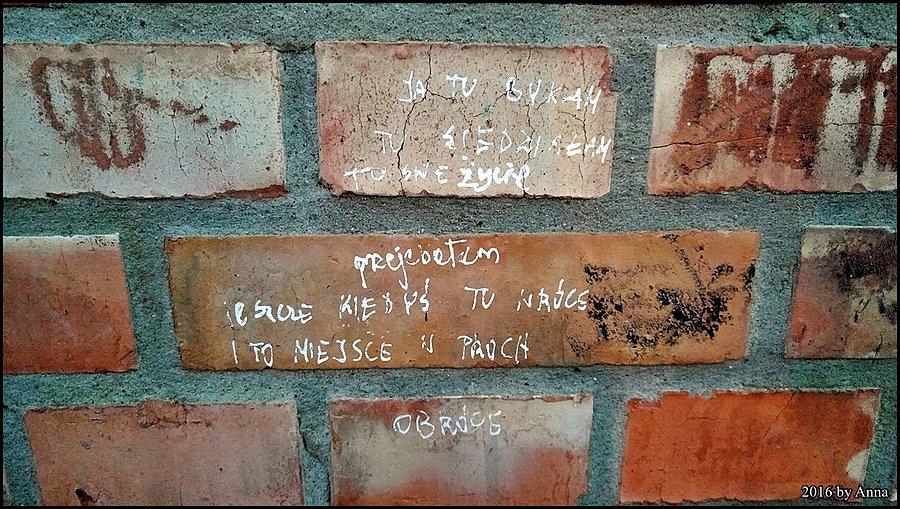 JA TU BYŁAM
TU SIEDZIAŁAM
TU SWE życie
przejebałem
JESZCZE KIEDYŚ TU WRÓCĘ
I TO MIEJSCE W PROCH
OBRÓCĘ
2016 by Anna